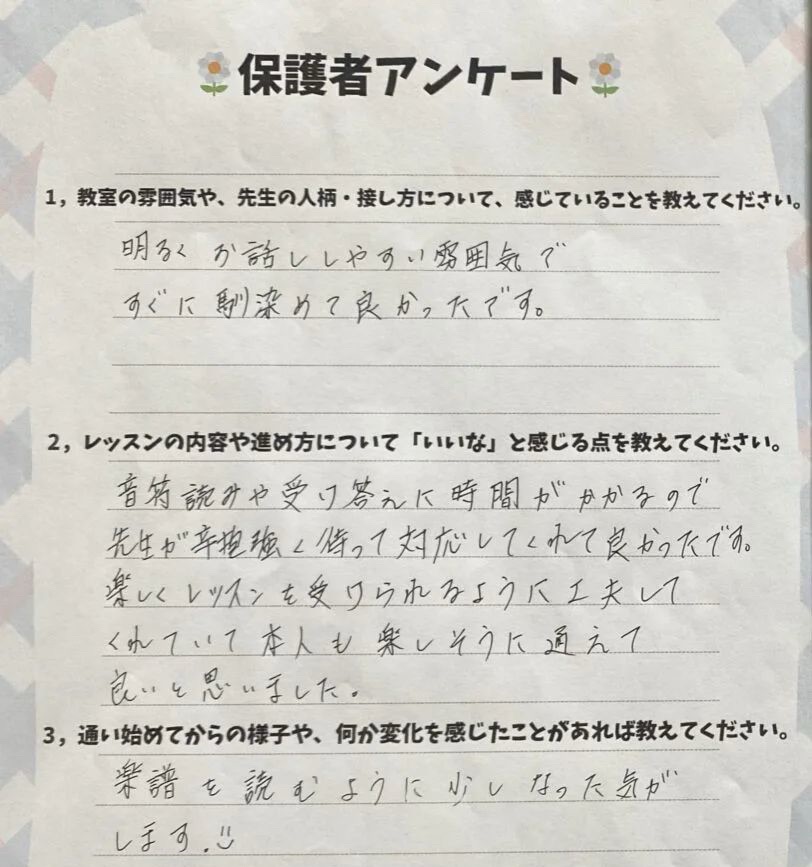 保護者アンケート
1, 教室の雰囲気や、先生の人柄・接し方について、感じていることを教えてください。
明るくお話ししやすい雰囲気で
すぐに馴染めて良かったです。
2, レッスンの内容や進め方について「いいな」と感じる点を教えてください。
音符読みや受け答えに時間がかかるので
先生が辛抱強く待って対応してくれて良かったです。
楽しくレッスンを受けられるように工夫して
くれていて本人も楽しそうに通えて
良いと思いました。
3, 通い始めてからの様子や、何か変化を感じたことがあれば教えてください。
楽譜を読むように少しなった気が
します.